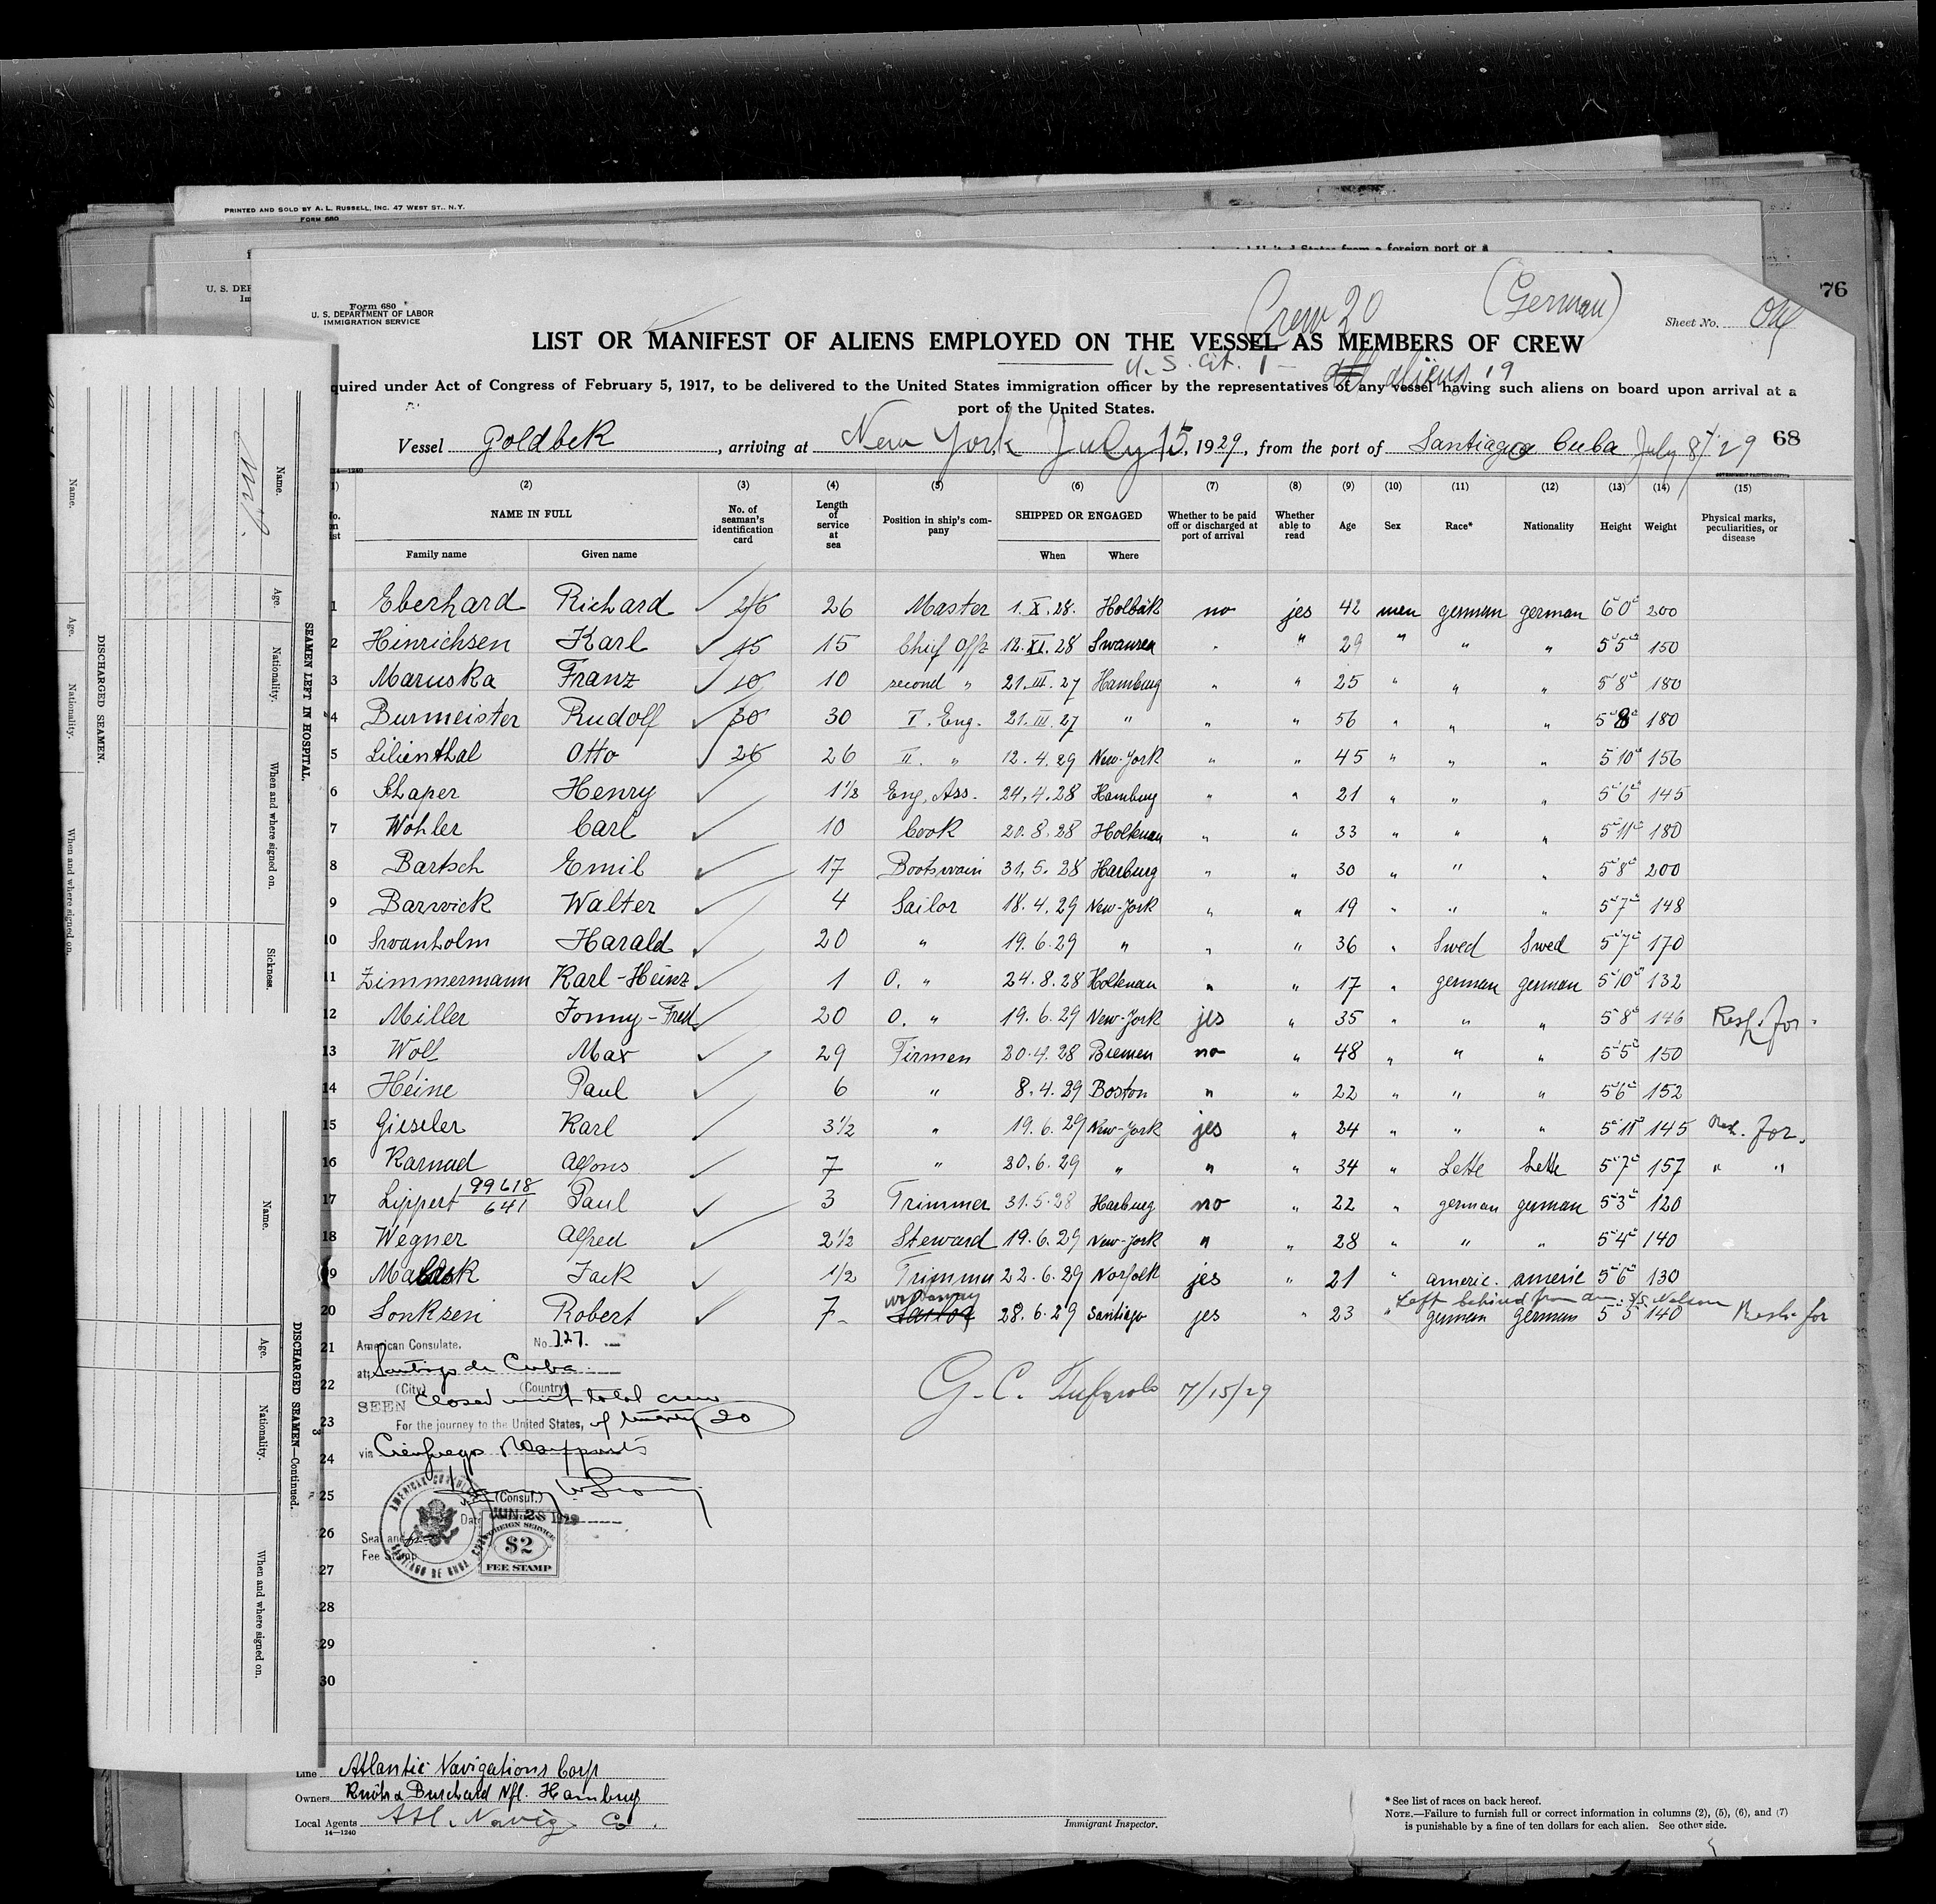 PRINTED AND SOLD BY A. L. RUSSELL, INC. 47 WEST ST., N.Y.
FORM 680
76
Form 680
U. S. DEPARTMENT OF LABOR
IMMIGRATION SERVICE
Crew 20 (German)
Sheet No.
LIST OR MANIFEST OF ALIENS EMPLOYED ON THE VESSEL AS MEMBERS OF CREW
U. S. Cit. 1 - aliens 19
quired under Act of Congress of February 5, 1917, to be delivered to the United States immigration officer by the representatives of any vessel having such aliens on board upon arrival at a
port of the United States.
Vessel Goldbek, arriving at New York July 15, 1929, from the port of Santiago Cuba July 8/29 68
(2) (3) (4) (5) (6) (7) (8) (9) (10) (11) (12) (13) (14) (15)
NAME IN FULL No. of seaman's identification card Length of service at sea Position in ship's company SHIPPED OR ENGAGED Whether to be paid off or discharged at port of arrival Whether able to read Age Sex Race* Nationality Height Weight Physical marks, peculiarities, or disease
Family name Given name When Where
1 Eberhard Richard 26 26 Master 1.X.28. Holbäk no jes 42 men german german 6 0 200
2 Hinrichsen Karl 15 15 Chief Offz 12.XI.28 Swansea " " 29 " " " 5 5 150
3 Maruska Franz 10 10 second " 21.III.27 Hamburg " " 25 " " " 5 8 180
4 Burmeister Rudolf 30 30 I. Eng. 21.III.27 " " " 56 " " " 5 8 180
5 Lilienthal Otto 26 26 II. " 12.4.29 New-York " " 45 " " " 5 10 156
6 Schaper Henry 1½ Eng. Ass. 24.4.28 Hamburg " " 21 " " " 5 6 145
7 Wohler Carl 10 Cook 20.8.28 Holtenau " " 33 " " " 5 11 180
8 Bartsch Emil 17 Bootswain 31.5.28 Harburg " " 30 " " " 5 8 200
9 Barwick Walter 4 Sailor 18.4.29 New-York " " 19 " " " 5 7 148
10 Swanholm Harald 20 " 19.6.29 " " " 36 " Swed Swed 5 7 170
11 Zimmermann Karl-Heinz 1 O. " 24.8.28 Holtenau " " 17 " german german 5 10 132
12 Miller Jonny-Fred 20 O. " 19.6.29 New-York jes " 35 " " " 5 8 146 Resh. for.
13 Wolf Max 29 Firmen 30.4.28 Bremen no " 48 " " " 5 5 150
14 Heine Paul 6 " 8.4.29 Boston " " 22 " " " 5 6 152
15 Gieseler Karl 3½ " 19.6.29 New-York jes " 24 " " " 5 11 145 Resh. for.
16 Karnad Alfons 7 " 20.6.29 " " " 34 " Lette Lette 5 7 157 " "
17 Lippert 99618/641 Paul 3 Trimmer 31.5.28 Harburg no " 22 " german german 5 3 120
18 Wegner Alfred 2½ Steward 19.6.29 New-York " " 28 " " " 5 4 140
19 Jack 1/2 Trimmer 22.6.29 Norfolk jes " 21 " americ. americ 5 6 130
workaway Left behind from am. S/S. Nelson
20 Sonksen Robert 7 - Sailor 28.6.29 Santiago jes " 23 " german german 5 5 140 Resh. for
21 American Consulate. No. 127.
at Santiago de Cuba
22 (City) (Country)
SEEN Closed with total crew
23 For the journey to the United States, of twenty 20
24 via Cienfuegos
G. C. 7/15/29
25 (Consul.)
Date JUN 28 1929
26 Seal and
Fee Stamp
AMERICAN CONSULATE SANTIAGO DE CUBA, CUBA
FOREIGN SERVICE $2 FEE STAMP
27
28
29
30
Line Atlantic Navigations Corp
Owners Knöhr & Burchard Nfl. Hamburg
Local Agents Atl. Navig. Co.
14—1240
Immigrant Inspector.
* See list of races on back hereof.
NOTE.—Failure to furnish full or correct information in columns (2), (5), (6), and (7)
is punishable by a fine of ten dollars for each alien. See other side.
SEAMEN LEFT IN HOSPITAL.
Name. Age. Nationality. When and where signed on. Sickness.
DISCHARGED SEAMEN.
Name. Age. Nationality. When and where signed on.
DISCHARGED SEAMEN—Continued.
Name. Age. Nationality. When and where signed on.